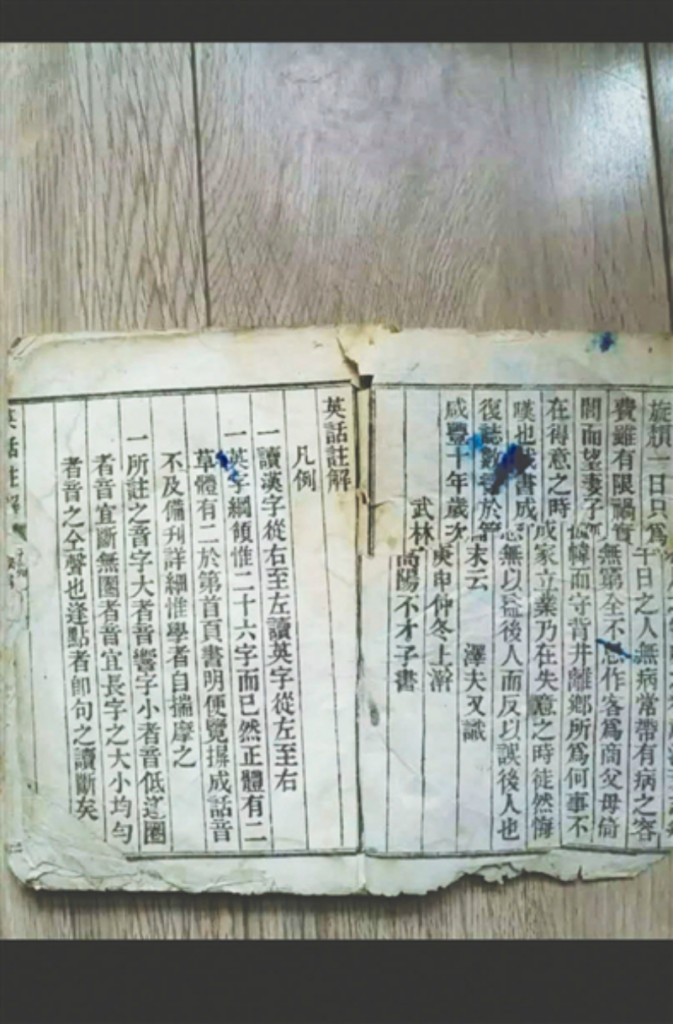 一日只爲千日之人無病常帶有病之容
費雖有限禍實無窮全不思作客爲商父母倚
閭而望妻子幃而守背井離鄉所爲何事不
在得意之時成家立業乃在失意之時徒然悔
嘆也我書成恐無以益後人而反以誤後人也
復誌數於篇末云 澤夫又識
咸豐十年歲次庚申仲冬上澣
武林高陽不才子書
英話註解
凡例
一讀漢字從右至左讀英字從左至右
一英字綱領惟二十六字而已然正體有二
草體有二於第首頁書明便覽摒成話音
不及偹刋詳細惟學者自揣摩之
一所註之音字大者音響字小者音低逢圈
者音宜斷無圈者音宜長字之大小均勻
者音之仝聲也逢點者卽句之讀斷矣
英話註解